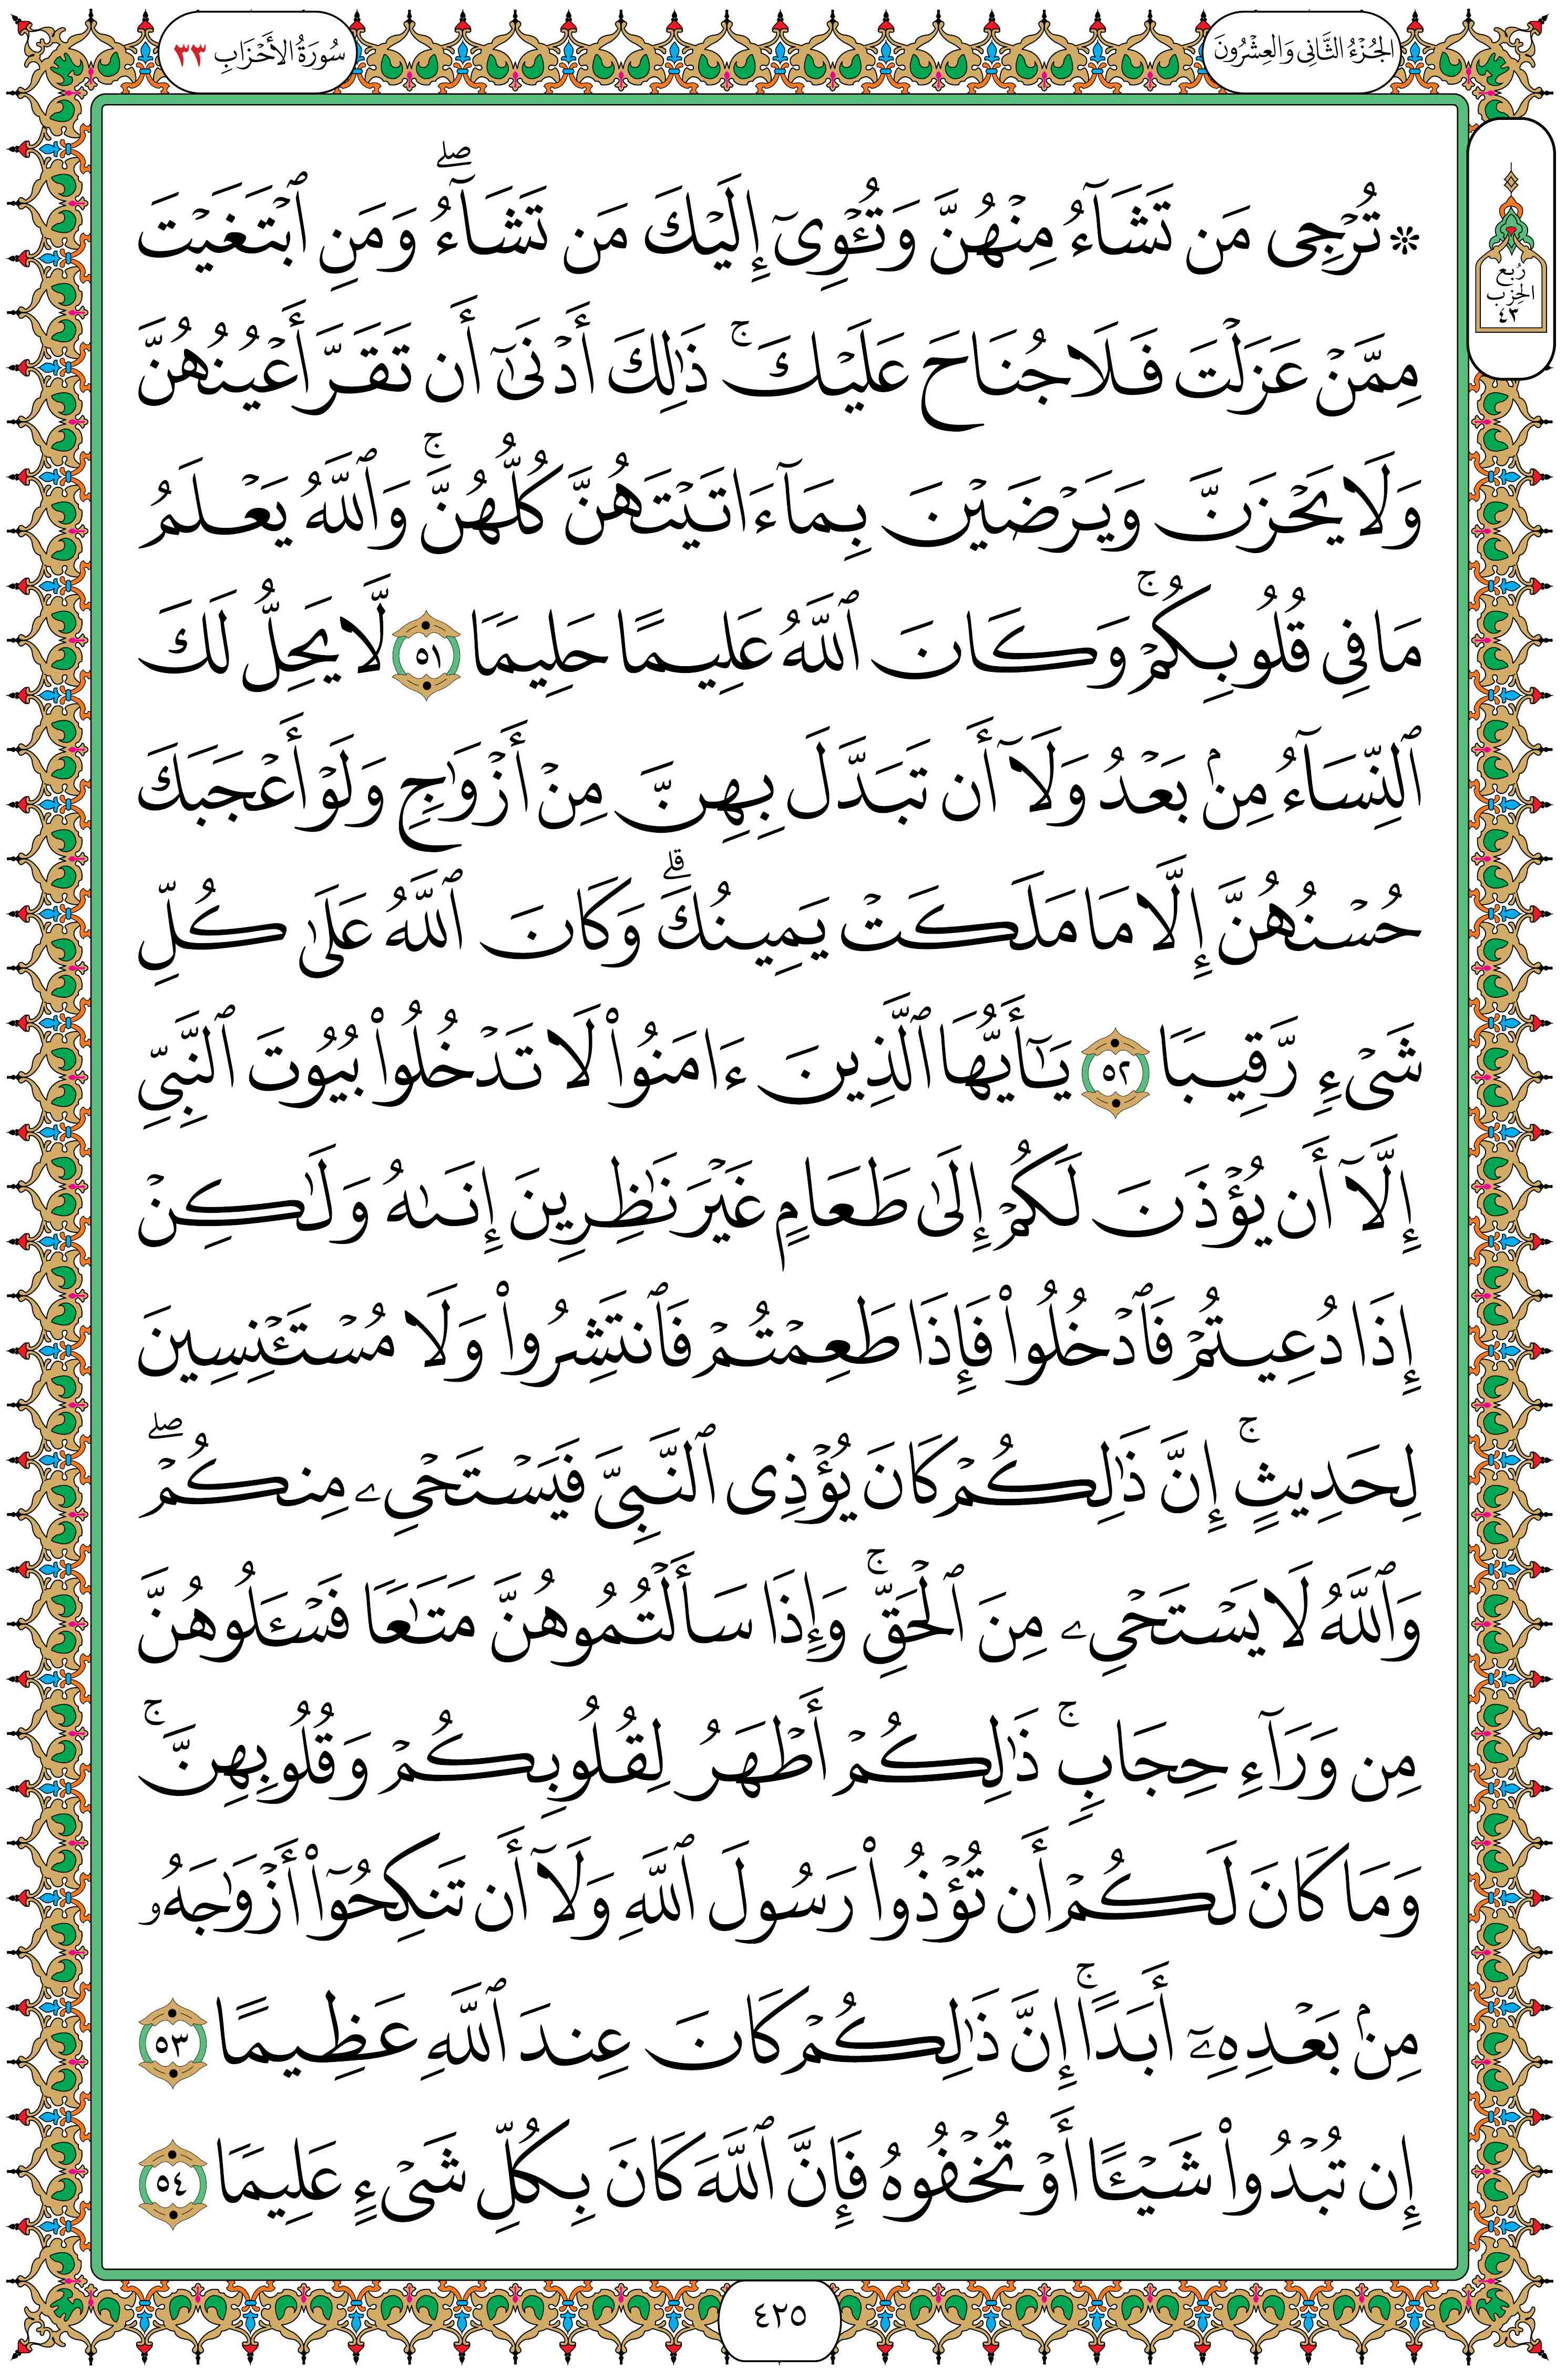 الجُزْءُ الثَّانِي وَالعِشْرُونَ
سُورَةُ الأَحْزَابِ ٣٣
رُبع
الحِزب
٤٣
۞ تُرْجِى مَن تَشَآءُ مِنْهُنَّ وَتُـْٔوِىٓ إِلَيْكَ مَن تَشَآءُۖ وَمَنِ ٱبْتَغَيْتَ
مِمَّنْ عَزَلْتَ فَلَا جُنَاحَ عَلَيْكَۚ ذَٰلِكَ أَدْنَىٰٓ أَن تَقَرَّ أَعْيُنُهُنَّ
وَلَا يَحْزَنَّ وَيَرْضَيْنَ بِمَآ ءَاتَيْتَهُنَّ كُلُّهُنَّۚ وَٱللَّهُ يَعْلَمُ
مَا فِى قُلُوبِكُمْۚ وَكَانَ ٱللَّهُ عَلِيمًا حَلِيمًا ٥١ لَّا يَحِلُّ لَكَ
ٱلنِّسَآءُ مِنۢ بَعْدُ وَلَآ أَن تَبَدَّلَ بِهِنَّ مِنْ أَزْوَٰجٍ وَلَوْ أَعْجَبَكَ
حُسْنُهُنَّ إِلَّا مَا مَلَكَتْ يَمِينُكَۗ وَكَانَ ٱللَّهُ عَلَىٰ كُلِّ
شَىْءٍ رَّقِيبًا ٥٢ يَـٰٓأَيُّهَا ٱلَّذِينَ ءَامَنُوا۟ لَا تَدْخُلُوا۟ بُيُوتَ ٱلنَّبِىِّ
إِلَّآ أَن يُؤْذَنَ لَكُمْ إِلَىٰ طَعَامٍ غَيْرَ نَـٰظِرِينَ إِنَىٰهُ وَلَـٰكِنْ
إِذَا دُعِيتُمْ فَٱدْخُلُوا۟ فَإِذَا طَعِمْتُمْ فَٱنتَشِرُوا۟ وَلَا مُسْتَـْٔنِسِينَ
لِحَدِيثٍۚ إِنَّ ذَٰلِكُمْ كَانَ يُؤْذِى ٱلنَّبِىَّ فَيَسْتَحْىِۦ مِنكُمْۖ
وَٱللَّهُ لَا يَسْتَحْىِۦ مِنَ ٱلْحَقِّۚ وَإِذَا سَأَلْتُمُوهُنَّ مَتَـٰعًا فَسْـَٔلُوهُنَّ
مِن وَرَآءِ حِجَابٍۚ ذَٰلِكُمْ أَطْهَرُ لِقُلُوبِكُمْ وَقُلُوبِهِنَّۚ
وَمَا كَانَ لَكُمْ أَن تُؤْذُوا۟ رَسُولَ ٱللَّهِ وَلَآ أَن تَنكِحُوٓا۟ أَزْوَٰجَهُۥ
مِنۢ بَعْدِهِۦٓ أَبَدًاۚ إِنَّ ذَٰلِكُمْ كَانَ عِندَ ٱللَّهِ عَظِيمًا ٥٣
إِن تُبْدُوا۟ شَيْـًٔا أَوْ تُخْفُوهُ فَإِنَّ ٱللَّهَ كَانَ بِكُلِّ شَىْءٍ عَلِيمًا ٥٤
٤٢٥